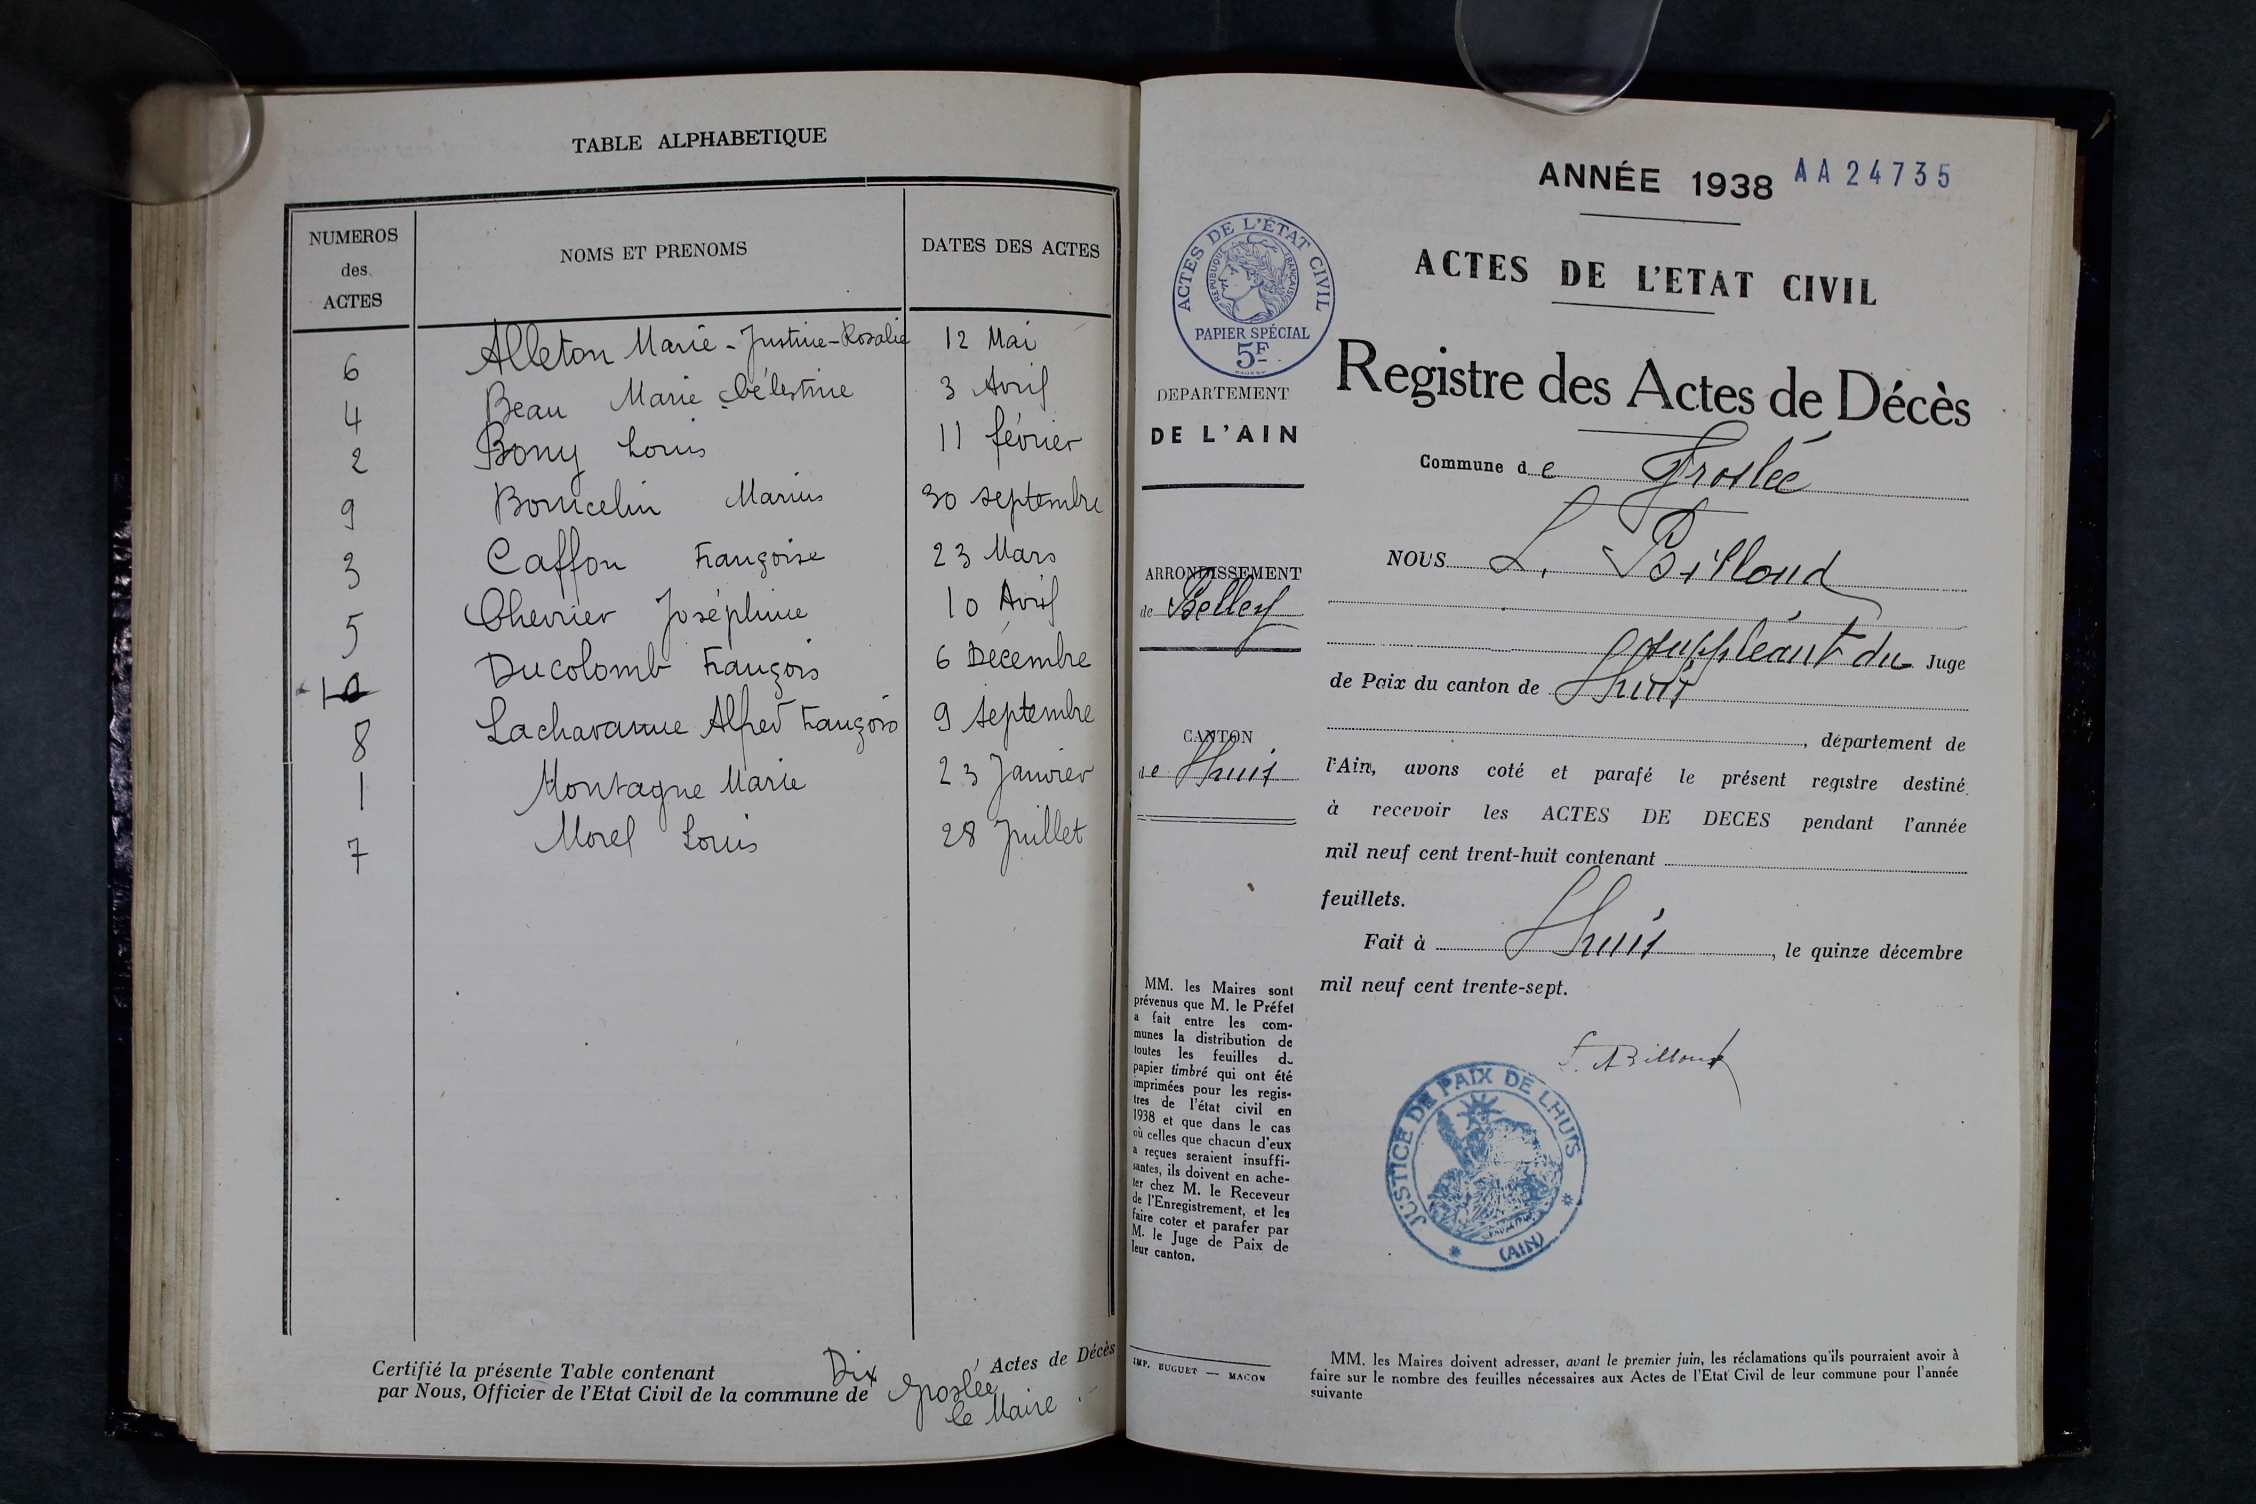 TABLE ALPHABETIQUE
NUMEROS
des
ACTES
NOMS ET PRENOMS
DATES DES ACTES
6 Alleton Marie-Justine-Rosalie 12 Mai
4 Beau Marie Célestine 3 Avril
2 Bony Louis 11 février
9 Marius 30 septembre
3 Caffon Françoise 23 Mars
5 Chevrier Joséphine 10 Avril
10 Ducolomb François 6 Décembre
8 Lachavanne Alfred François 9 septembre
1 Montagne Marie 23 Janvier
7 Morel Louis 28 Juillet
Certifié la présente Table contenant Dix Actes de Décès
par Nous, Officier de l'Etat Civil de la commune de Groslée
le Maire
ANNÉE 1938 AA 24735
ACTES DE L'ÉTAT CIVIL
RÉPUBLIQUE FRANÇAISE
PAPIER SPÉCIAL
5F
ACTES DE L'ETAT CIVIL
Registre des Actes de Décès
DEPARTEMENT
DE L'AIN
Commune de Groslée
ARRONDISSEMENT
de Belley
CANTON
de Lhuis
NOUS L. Billoud
suppléant du Juge
de Paix du canton de Lhuis
, département de
l'Ain, avons coté et parafé le présent registre destiné
à recevoir les ACTES DE DECES pendant l'année
mil neuf cent trent-huit contenant
feuillets.
Fait à Lhuis, le quinze décembre
mil neuf cent trente-sept.
L. Billoud
JUSTICE DE PAIX DE LHUIS
(AIN)
MM. les Maires sont
prévenus que M. le Préfet
a fait entre les com-
munes la distribution de
toutes les feuilles du
papier timbré qui ont été
imprimées pour les regis-
tres de l'état civil en
1938 et que dans le cas
où celles que chacun d'eux
a reçues seraient insuffi-
santes, ils doivent en ache-
ter chez M. le Receveur
de l'Enregistrement, et les
faire coter et parafer par
M. le Juge de Paix de
leur canton.
IMP. BUGUET — MACON
MM. les Maires doivent adresser, avant le premier juin, les réclamations qu'ils pourraient avoir à
faire sur le nombre des feuilles nécessaires aux Actes de l'Etat Civil de leur commune pour l'année
suivante